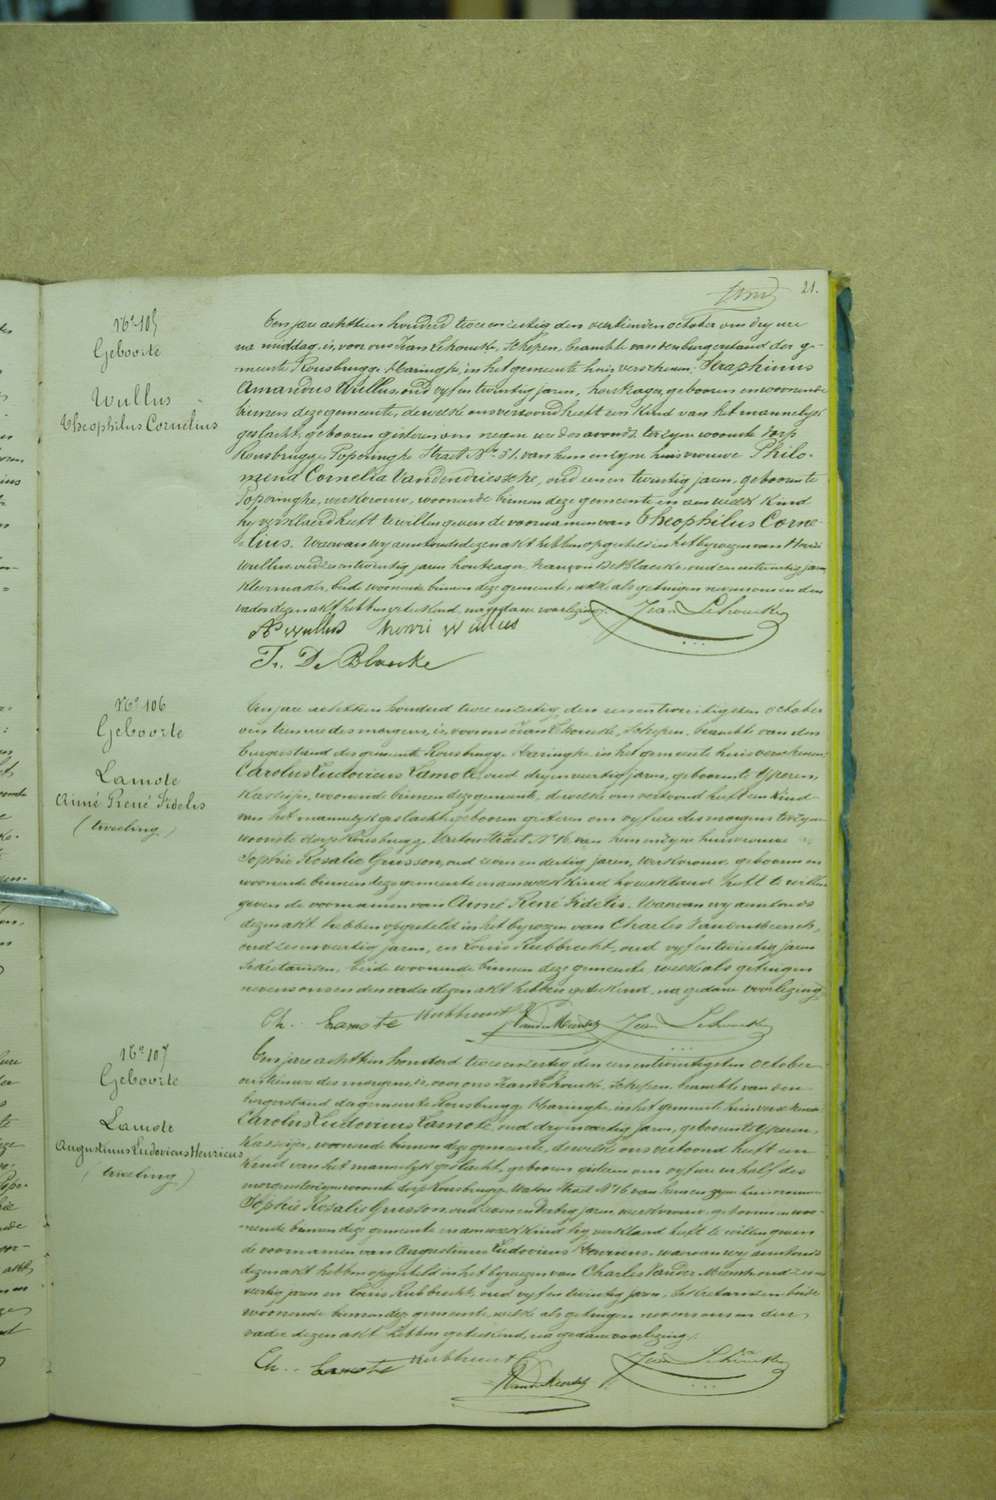 21.
Nr 105
Geboorte
Wullus
Theophilus Cornelius
Een jare achttien honderd twee en zestig den veertienden october om dry ure
na middag, is, voor ons Jean Lehoucke, Schepen, beambte van den burgerstand der ge-
meente Rousbrugge Haringhe, in het gemeente huis verschenen: Seraphinus
Amandus Wullus, oud vyf en twintig jaren, houtzager, geboren en woonende
binnen deze gemeente, dewelke ons vertoond heeft een kind van het mannelyk
geslacht, geboren gisteren om negen ure des avonds, ter zyne woonste dorp
Rousbrugge, Poperinghe Straet Nr 51. van hem en zyne huisvrouwe Philo-
mena Cornelia Vandendriessche, oud een en twintig jaren, geboren te
Poperinghe, werkvrouw, woonende binnen deze gemeente, en aen welk kind
hy verklaerd heeft te willen geven de voornamen van Theophilus Corne-
lius. Waervan wy aenstonds dezen akt hebben opgesteld in het bywezen van Henri
Wullus, oud twintig jaren houtzager, François De Blaecke, oud een en twintig jaren
kleermaker, beide woonende binnen deze gemeente, welke als getuigen nevens ons en den
vader dezen akt hebben geteekend, na gedane voorlezing.
Jean Lehoucke
S. Wullus Henri Wullus
Fr. De Blaecke
Nr 106
Geboorte
Lamote
Aimé René Fidelis
(tweeling)
Een jare achttien honderd twee en zestig, den een en twintigsten october
om tien ure des morgens, is, voor ons Jean Lehoucke, Schepen, beambte van den
burgerstand der gemeente Rousbrugge Haringhe, in het gemeente huis verschenen
Carolus Ludovicus Lamote, oud dry en veertig jaren, geboren te Yperen,
woonende binnen deze gemeente, dewelke ons vertoond heeft een kind
van het mannelyk geslacht, geboren gisteren om vyf ure des morgens ter zyne
woonste dorp Rousbrugge, Watou Straet Nr 16. van hem en zyne huisvrouwe
Sophie Rosalie Grusson, oud en dertig jaren, werkvrouw, geboren en
woonende binnen deze gemeente en aen welk kind hy verklaerd heeft te willen
geven de voornamen van Aimé René Fidelis. Waervan wy aenstonds
dezen akt hebben opgesteld in het bywezen van Charles
oud veertig jaren, en Louis Rubbrecht, oud vyf en twintig jaren
Sekretarissen, beide woonende binnen deze gemeente, welke als getuigen
nevens ons en den vader dezen akt hebben geteekend, na gedane voorlezing.
Ch. Lamote Rubbrecht L. Jean Lehoucke
Nr 107
Geboorte
Lamote
Augustinus Ludovicus Henricus
(tweeling)
Een jare achttien honderd twee en zestig den een en twintigsten october
om tien ure des morgens, is, voor ons Jean Lehoucke, Schepen, beambte van den
burgerstand der gemeente Rousbrugge Haringhe, in het gemeente huis verschenen
Carolus Ludovicus Lamote, oud dry en veertig jaren, geboren te Yperen,
woonende binnen deze gemeente, dewelke ons vertoond heeft een
kind van het mannelyk geslacht, geboren gisteren om vyf ure en half des
morgens ter zyne woonste dorp Rousbrugge, Watou Straet Nr 16 van hem en zyne huisvrouwe
Sophie Rosalie Grusson, oud en dertig jaren werkvrouw, geboren en woo-
nende binnen deze gemeente en aen welk kind hy verklaerd heeft te willen geven
de voornamen van Augustinus Ludovicus Henricus. waervan wy aenstonds
dezen akt hebben opgesteld in het bywezen van Charles oud
veertig jaren en Louis Rubbrecht, oud vyf en twintig jaren, Sekretarissen beide
woonende binnen deze gemeente, welke als getuigen nevens ons en den
vader dezen akt hebben geteekend, na gedane voorlezing.
Ch. Lamote Rubbrecht L. Jean Lehoucke